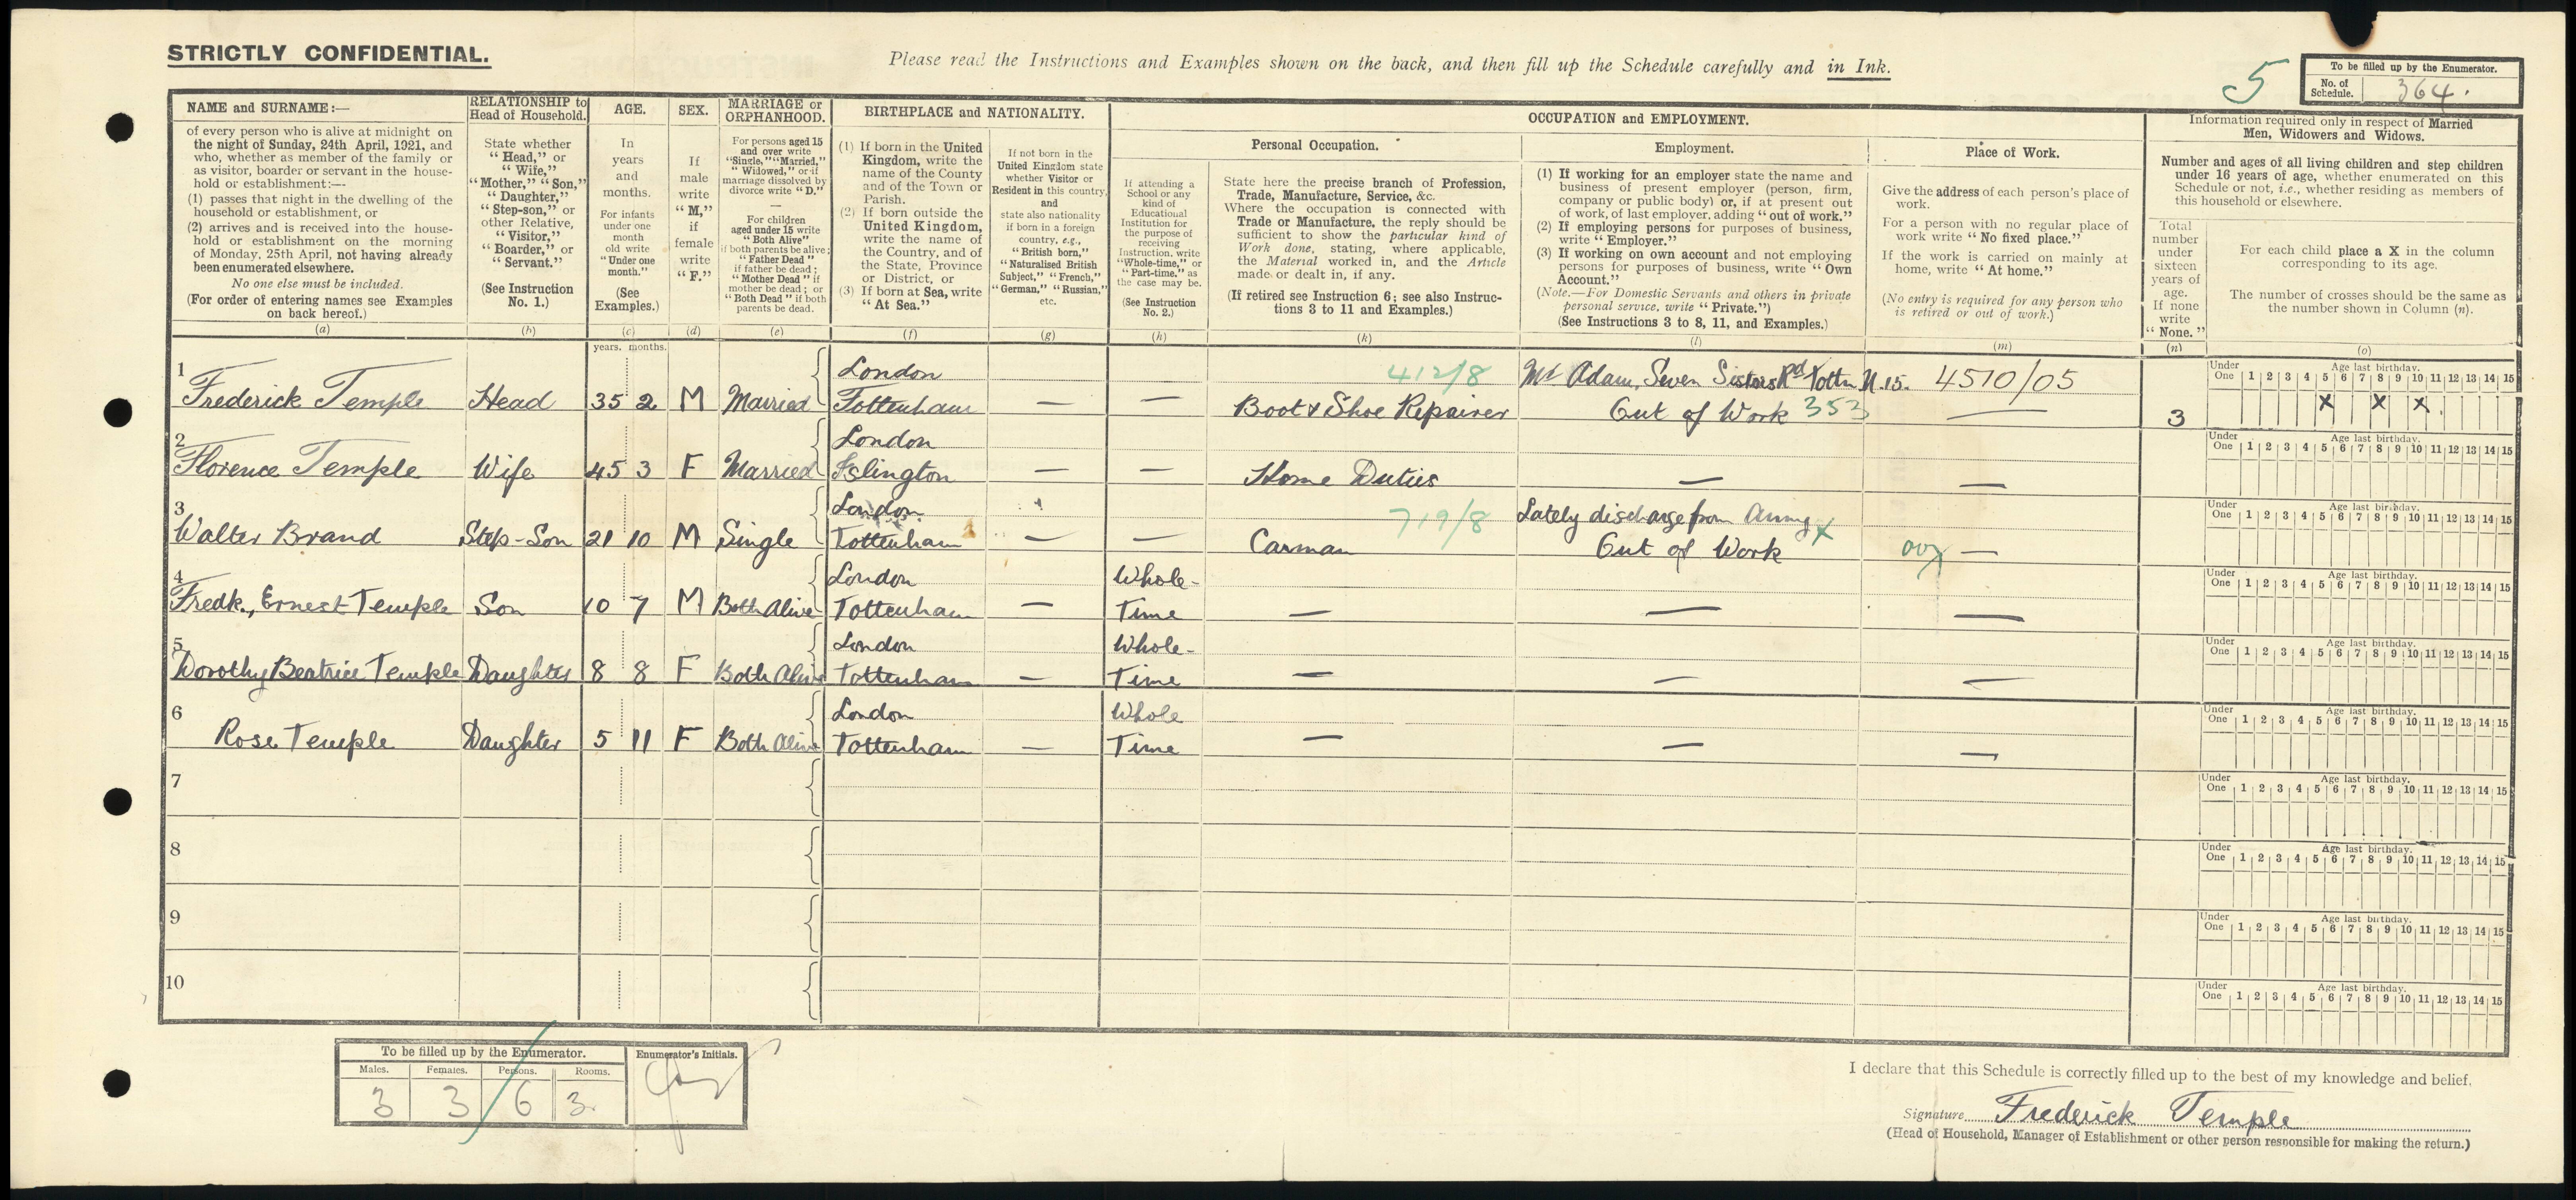 STRICTLY CONFIDENTIAL.
Please read the Instructions and Examples shown on the back, and then fill up the Schedule carefully and in Ink.
5
To be filled up by the Enumerator.
No. of Schedule. 364.
NAME and SURNAME:—
of every person who is alive at midnight on
the night of Sunday, 24th April, 1921, and
who, whether as member of the family or
as visitor, boarder or servant in the house-
hold or establishment:—
(1) passes that night in the dwelling of the
household or establishment, or
(2) arrives and is received into the house-
hold or establishment on the morning
of Monday, 25th April, not having already
been enumerated elsewhere.
No one else must be included.
(For order of entering names see Examples
on back hereof.)
(a)
RELATIONSHIP to
Head of Household.
State whether
"Head," or
"Wife,"
"Mother," "Son,"
"Daughter,"
"Step-son," or
other Relative,
"Visitor,"
"Boarder," or
"Servant."
(See Instruction
No. 1.)
(b)
AGE.
In
years
and
months.
For infants
under one
month
old write
"Under one
month."
(See
Examples.)
(c)
SEX.
If
male
write
"M,"
if
female
write
"F."
(d)
MARRIAGE or
ORPHANHOOD.
For persons aged 15
and over write
"Single," "Married,"
"Widowed," or if
marriage dissolved by
divorce write "D."
—
For children
aged under 15 write
"Both Alive"
if both parents be alive;
"Father Dead"
if father be dead;
"Mother Dead" if
mother be dead; or
"Both Dead" if both
parents be dead.
(e)
BIRTHPLACE and NATIONALITY.
(1) If born in the United
Kingdom, write the
name of the County
and of the Town or
Parish.
(2) If born outside the
United Kingdom,
write the name of
the Country, and of
the State, Province
or District, or
(3) If born at Sea, write
"At Sea."
(f)
If not born in the
United Kingdom state
whether Visitor or
Resident in this country,
and
state also nationality
if born in a foreign
country, e.g.,
"British born,"
"Naturalised British
Subject," "French,"
"German," "Russian,"
etc.
(g)
OCCUPATION and EMPLOYMENT.
If attending a
School or any
kind of
Educational
Institution for
the purpose of
receiving
Instruction, write
"Whole-time," or
"Part-time," as
the case may be.
(See Instruction
No. 2.)
(h)
Personal Occupation.
State here the precise branch of Profession,
Trade, Manufacture, Service, &c.
Where the occupation is connected with
Trade or Manufacture, the reply should be
sufficient to show the particular kind of
Work done, stating, where applicable,
the Material worked in, and the Article
made or dealt in, if any.
(If retired see Instruction 6; see also Instruc-
tions 3 to 11 and Examples.)
(k)
Employment.
(1) If working for an employer state the name and
business of present employer (person, firm,
company or public body) or, if at present out
of work, of last employer, adding "out of work."
(2) If employing persons for purposes of business,
write "Employer."
(3) If working on own account and not employing
persons for purposes of business, write "Own
Account."
(Note.—For Domestic Servants and others in private
personal service, write "Private.")
(See Instructions 3 to 8, 11, and Examples.)
(l)
Place of Work.
Give the address of each person's place of
work.
For a person with no regular place of
work write "No fixed place."
If the work is carried on mainly at
home, write "At home."
(No entry is required for any person who
is retired or out of work.)
(m)
Information required only in respect of Married
Men, Widowers and Widows.
Number and ages of all living children and step children
under 16 years of age, whether enumerated on this
Schedule or not, i.e., whether residing as members of
this household or elsewhere.
Total
number
under
sixteen
years of
age.
If none
write
"None."
(n)
For each child place a X in the column
corresponding to its age.
The number of crosses should be the same as
the number shown in Column (n).
(o)
years. months.
1 London 412/8 Mr Adam, Seven Sisters Rd Tottm N.15. 4510/05
Frederick Temple Head 35 2 M Married Tottenham — — Boot & Shoe Repairer Out of Work 353 — 3 X X X
Under One Age last birthday. 1 2 3 4 5 6 7 8 9 10 11 12 13 14 15
2 London
Florence Temple Wife 45 3 F Married Islington — — Home Duties — —
Under One Age last birthday. 1 2 3 4 5 6 7 8 9 10 11 12 13 14 15
3 London 719/8 Lately discharge from Army X
Walter Brand Step-Son 21 10 M Single Tottenham — — Carman Out of Work —
Under One Age last birthday. 1 2 3 4 5 6 7 8 9 10 11 12 13 14 15
4 London Whole-
Fredk., Ernest Temple Son 10 7 M Both Alive Tottenham — Time — — —
Under One Age last birthday. 1 2 3 4 5 6 7 8 9 10 11 12 13 14 15
5 London Whole-
Dorothy Beatrice Temple Daughter 8 8 F Both Alive Tottenham — Time — — —
Under One Age last birthday. 1 2 3 4 5 6 7 8 9 10 11 12 13 14 15
6 London Whole
Rose Temple Daughter 5 11 F Both Alive Tottenham — Time — — —
Under One Age last birthday. 1 2 3 4 5 6 7 8 9 10 11 12 13 14 15
7
Under One Age last birthday. 1 2 3 4 5 6 7 8 9 10 11 12 13 14 15
8
Under One Age last birthday. 1 2 3 4 5 6 7 8 9 10 11 12 13 14 15
9
Under One Age last birthday. 1 2 3 4 5 6 7 8 9 10 11 12 13 14 15
10
Under One Age last birthday. 1 2 3 4 5 6 7 8 9 10 11 12 13 14 15
To be filled up by the Enumerator.
Males. Females. Persons. Rooms.
3 3 6 3.
Enumerator's Initials.
I declare that this Schedule is correctly filled up to the best of my knowledge and belief.
Signature Frederick Temple
(Head of Household, Manager of Establishment or other person responsible for making the return.)